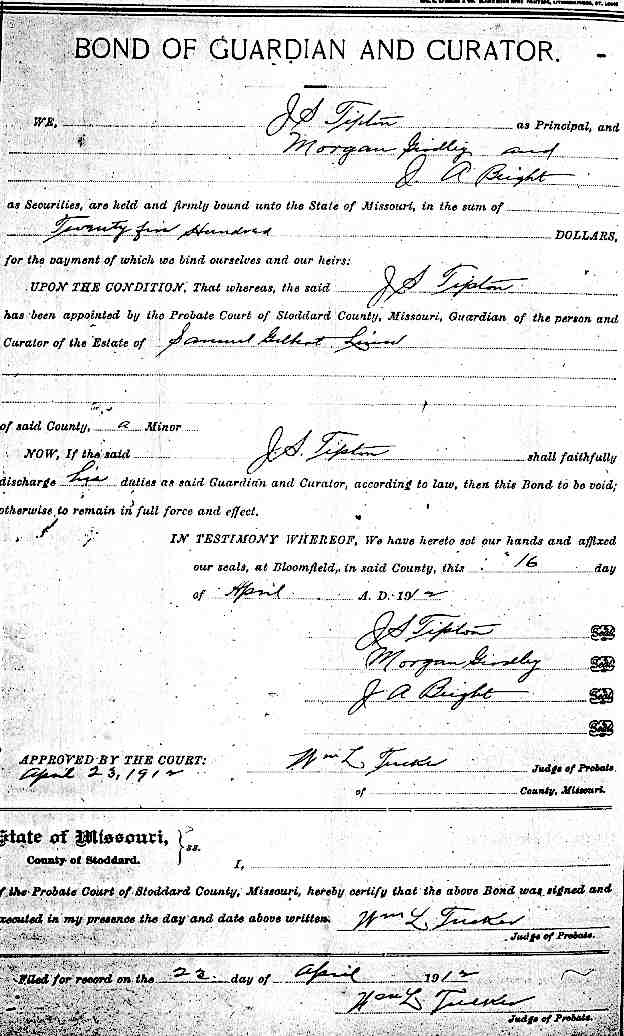 BOND OF GUARDIAN AND CURATOR.
WE, J S Tipton as Principal, and
Morgan and
J A Bright
as Securities, are held and firmly bound unto the State of Missouri, in the sum of
Twenty five Hundred DOLLARS,
for the payment of which we bind ourselves and our heirs:
UPON THE CONDITION, That whereas, the said J S Tipton
has been appointed by the Probate Court of Stoddard County, Missouri, Guardian of the person and
Curator of the Estate of Samuel Gilbert
of said County, a Minor
NOW, If the said J. S. Tipton shall faithfully
discharge his duties as said Guardian and Curator, according to law, then this Bond to be void;
otherwise to remain in full force and effect.
IN TESTIMONY WHEREOF, We have hereto set our hands and affixed
our seals, at Bloomfield, in said County, this 16 day
of April A. D. 1912
J S Tipton Seal
Morgan Seal
J A Bright Seal
Seal
APPROVED BY THE COURT: Wm L Tucker Judge of Probate
April 23, 1912 of County, Missouri.
State of Missouri, } ss.
County of Stoddard.
I,
f the Probate Court of Stoddard County, Missouri, hereby certify that the above Bond was signed and
xecuted in my presence the day and date above written. Wm L Tucker
Judge of Probate.
Filed for record on the day of April 1912
Wm L Tucker
Judge of Probate.